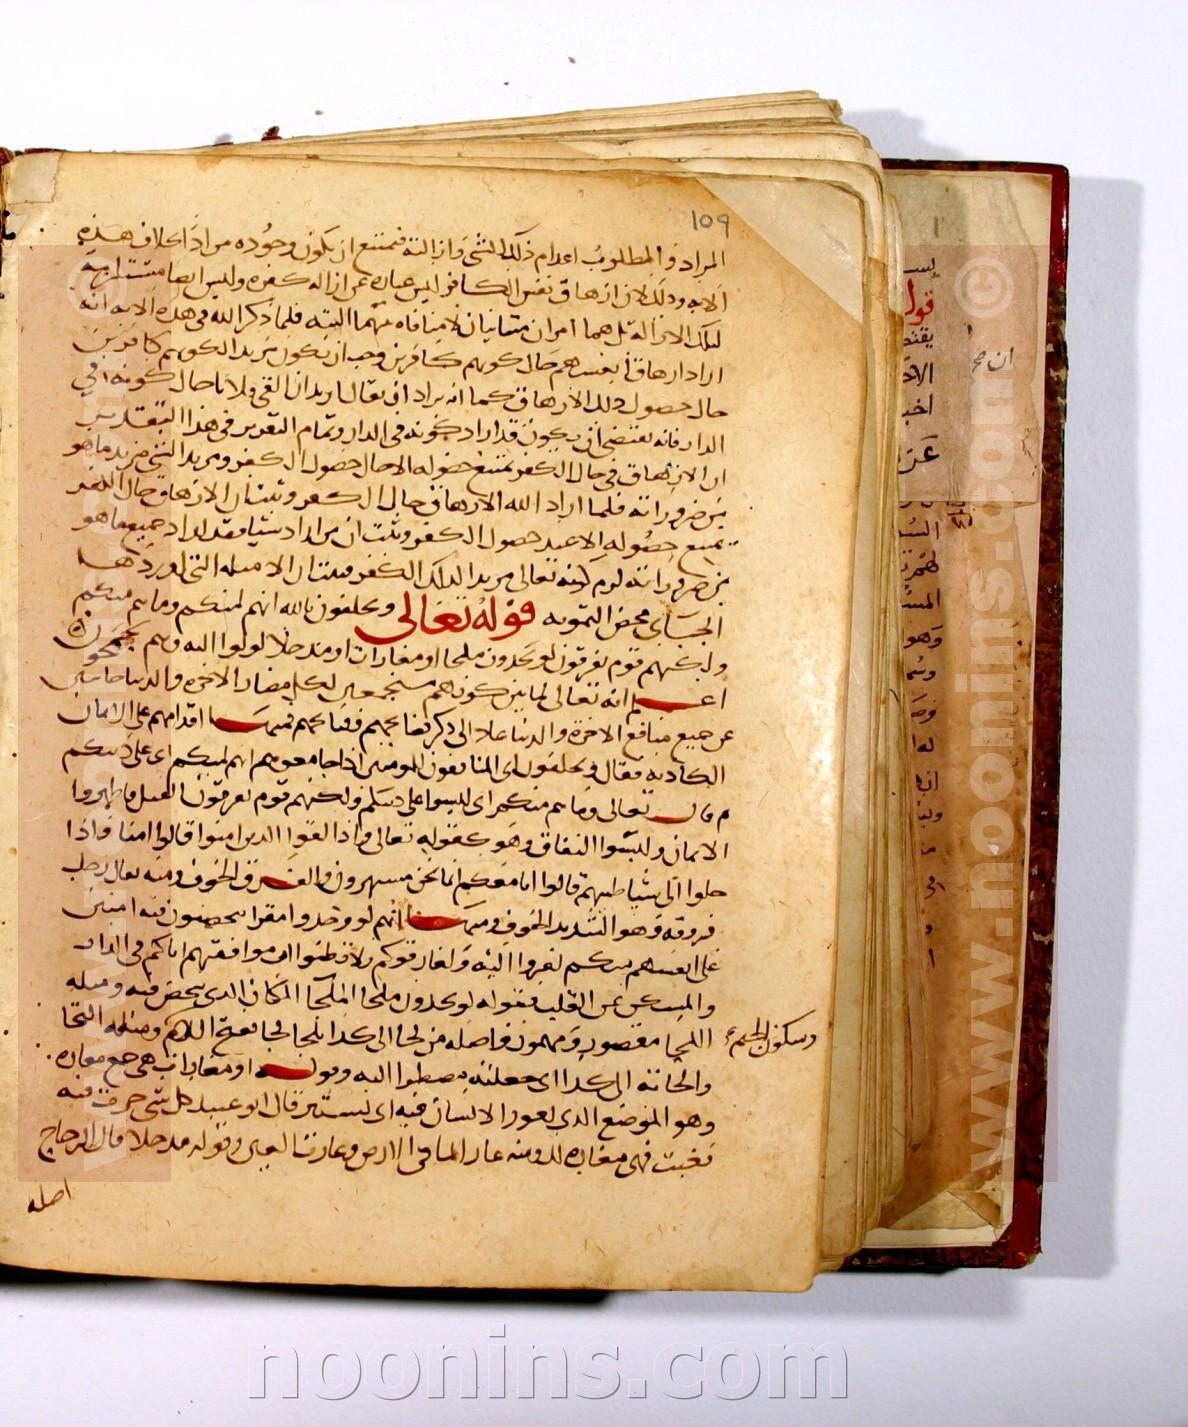 ١٥٩
المراد والمطلوب اعدام ذلك الشئ وازالته فيمتنع ان يكون وجوده مرادا بخلاف هذه
الايه وذلك لان ازهاق نفس الكافر ليس عباره عن ازاله كفره وليس ايضا مستلزمة
لتلك الازاله بل هما امران متباينان لا منافاه بينهما البته فلما ذكر الله فى هذه الايه انه
اراد ازهاق انفسهم حال كونهم كافرين وجب ان يكون مريدا لكونهم كافرين
حال حصول ذلك الازهاق كما انه يراد ان يقال اريد ان القى فلانا حال كونه فى
الدار فانه يقتضى ان يكون قد اراد كونه فى الدار وتمام التقرير فى هذا التقدير
ان الازهاق فى حال الكفر يمتنع حصوله الا حال حصول الكفر ومريد الشئ مريد ما هو
من ضروراته فلما اراد الله الازهاق حال الكفر وثبت ان الازهاق حال الكفر
يمتنع حصوله الا عند حصول الكفر وثبت ان من اراد شيا فقد اراد جميع ما هو
من ضروراته لزم كونه تعالى مريدا لذلك الكفر فثبت ان الامثله التى اوردها
الجبائى محض التمويه قوله تعالى ويحلفون بالله انهم لمنكم وما هم منكم
ولكنهم قوم يفرقون لو يجدون ملجا او مغارات او مدخلا لولوا اليه وهم يجمحون
اعلم انه تعالى لما بين كونهم مستجمعين لكل مضار الاخره والدنيا خائبين
عن جميع منافع الاخرة والدنيا عاد الى ذكر قبائحهم وفضائحهم فمنها اقدامهم على الايمان
الكاذبه فقال ويحلفون اى المنافقون للمومنين اذا جالسوهم انهم لمنكم اى على دينكم
م قال تعالى وما هم منكم اى ليسوا على دينكم ولكنهم قوم يفرقون القتل فاظهروا
الايمان واسروا النفاق وهو كقوله تعالى واذا لقوا الذين امنوا قالوا امنا واذا
خلوا الى شياطينهم قالوا انا معكم انما نحن مستهزون والفرق الخوف ومنه يقال رجل
فروقه وهو الشديد الخوف ومنها انهم لو وجدوا مفرا يتحصنون فيه امنين
على انفسهم منكم لفروا اليه ولفارقوكم فلا تظنوا ان موافقتهم اياكم فى الدار
والمسكن عن القلب فقوله لو يجدون ملجا الملجا المكان الذى يتحصن فيه ومثله
اللجا مقصور ومهموز واصله من لجا الى كذا يلجا لجا بفتح اللام ومثله التجا
وسكون الجيم
والجاته الى كذا اى جعلته مضطرا اليه وقوله او مغارات هى جمع مغاره
وهو الموضع الذى يغور الانسان فيه اى يستتر قال ابو عبيد كل شى جرت فيه
فغبت فهى مغاره لك ومنه غار الما فى الارض وغارت العين وقوله مدخلا قال الزجاج
اصله
noonins.com
www.noonins.com ©